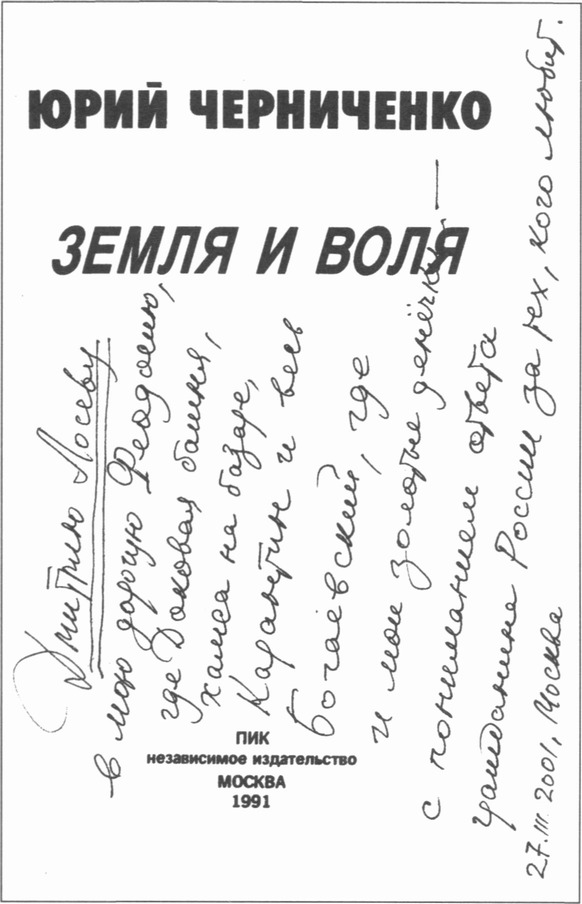 ЮРИЙ ЧЕРНИЧЕНКО
ЗЕМЛЯ И ВОЛЯ
Дмитрию Лосеву
в мою дорогую Феодосию,
где Доковая башня,
хамса на базаре,
Карантин и весь
Богаевский, где
и мои золотые денёчки —
с пониманием ответа
гражданина России за тех, кого любит.
27.III.2001, Москва
ПИК
независимое издательство
МОСКВА
1991